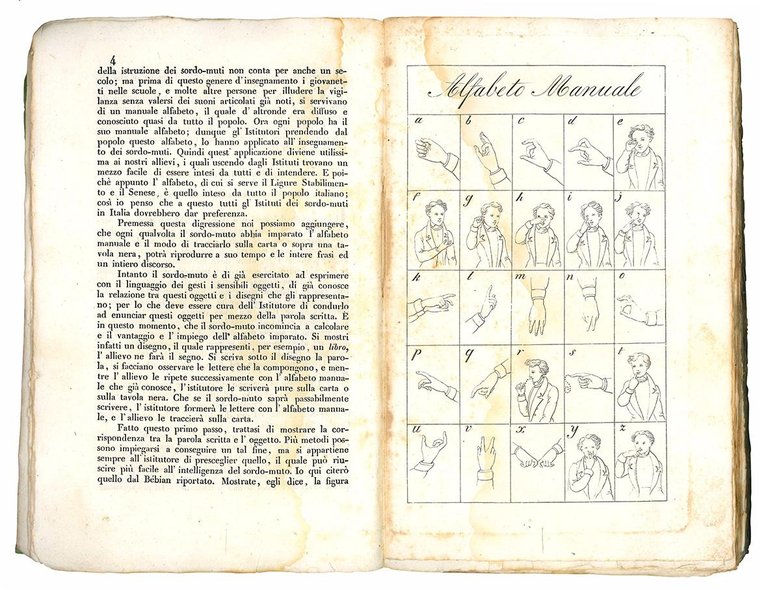 4
della istruzione dei sordo-muti non conta per anche un se-
colo; ma prima di questo genere d'insegnamento i giovanet-
ti nelle scuole, e molte altre persone per illudere la vigi-
lanza senza valersi dei suoni articolati già noti, si servivano
di un manuale alfabeto, il quale d'altronde era diffuso e
conosciuto quasi da tutto il popolo. Ora ogni popolo ha il
suo manuale alfabeto; dunque gl'Istitutori prendendo dal
popolo questo alfabeto, lo hanno applicato all'insegnamen-
to dei sordo-muti. Quindi quest'applicazione diviene utilissi-
ma ai nostri allievi, i quali uscendo dagli Istituti trovano un
mezzo facile di essere intesi da tutti e di intendere. E poi-
chè appunto l'alfabeto, di cui si serve il Ligure Stabilimen-
to e il Senese, è quello inteso da tutto il popolo italiano;
così io penso che a questo tutti gl Istituti dei sordo-muti
in Italia dovrebbero dar preferenza.
Premessa questa digressione noi possiamo aggiungere,
che ogni qualvolta il sordo-muto abbia imparato l'alfabeto
manuale e il modo di tracciarlo sulla carta o sopra una ta-
vola nera, potrà riprodurre a suo tempo e le intere frasi ed
un intiero discorso.
Intanto il sordo-muto è di già esercitato ad esprimere
con il linguaggio dei gesti i sensibili oggetti, di già conosce
la relazione tra questi oggetti e i disegni che gli rappresenta-
no; per lo che deve essere cura dell'Istitutore di condurlo
ad enunciar questi oggetti per mezzo della parola scritta. È
in questo momento, che il sordo-muto incomincia a calcolare
e il vantaggio e l'impiego dell'alfabeto imparato. Si mostri
infatti un disegno, il quale rappresenti, per esempio, un libro,
l'allievo ne farà il segno. Si scriva sotto il disegno la paro-
la, si facciano osservare le lettere che la compongono, e men-
tre l'allievo le ripete successivamente con l'alfabeto manua-
le che già conosce, l'istitutore le scriverà pure sulla carta o
sulla tavola nera. Che se il sordo-muto saprà passabilmente
scrivere, l'istitutore formerà le lettere con l'alfabeto manua-
le, e l'allievo le traccierà sulla carta.
Fatto questo primo passo, trattasi di mostrare la cor-
rispondenza tra la parola scritta e l'oggetto. Più metodi pos-
sono impiegarsi a conseguire un tal fine, ma si appartiene
sempre all'istitutore di presceglier quello, il quale può riu-
scire più facile all'intelligenza del sordo-muto. Io qui citerò
quello dal Bébian riportato. Mostrate, egli dice, la figura
Alfabeto Manuale
a b c d e
f g h i j
k l m n o
p q r s t
u v x y z